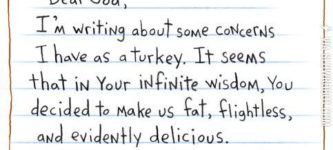 Dear God,
I'm writing about some concerns
I have as a turkey. It seems
that in Your infinite wisdom, You
decided to make us fat, flightless,
and evidently delicious.